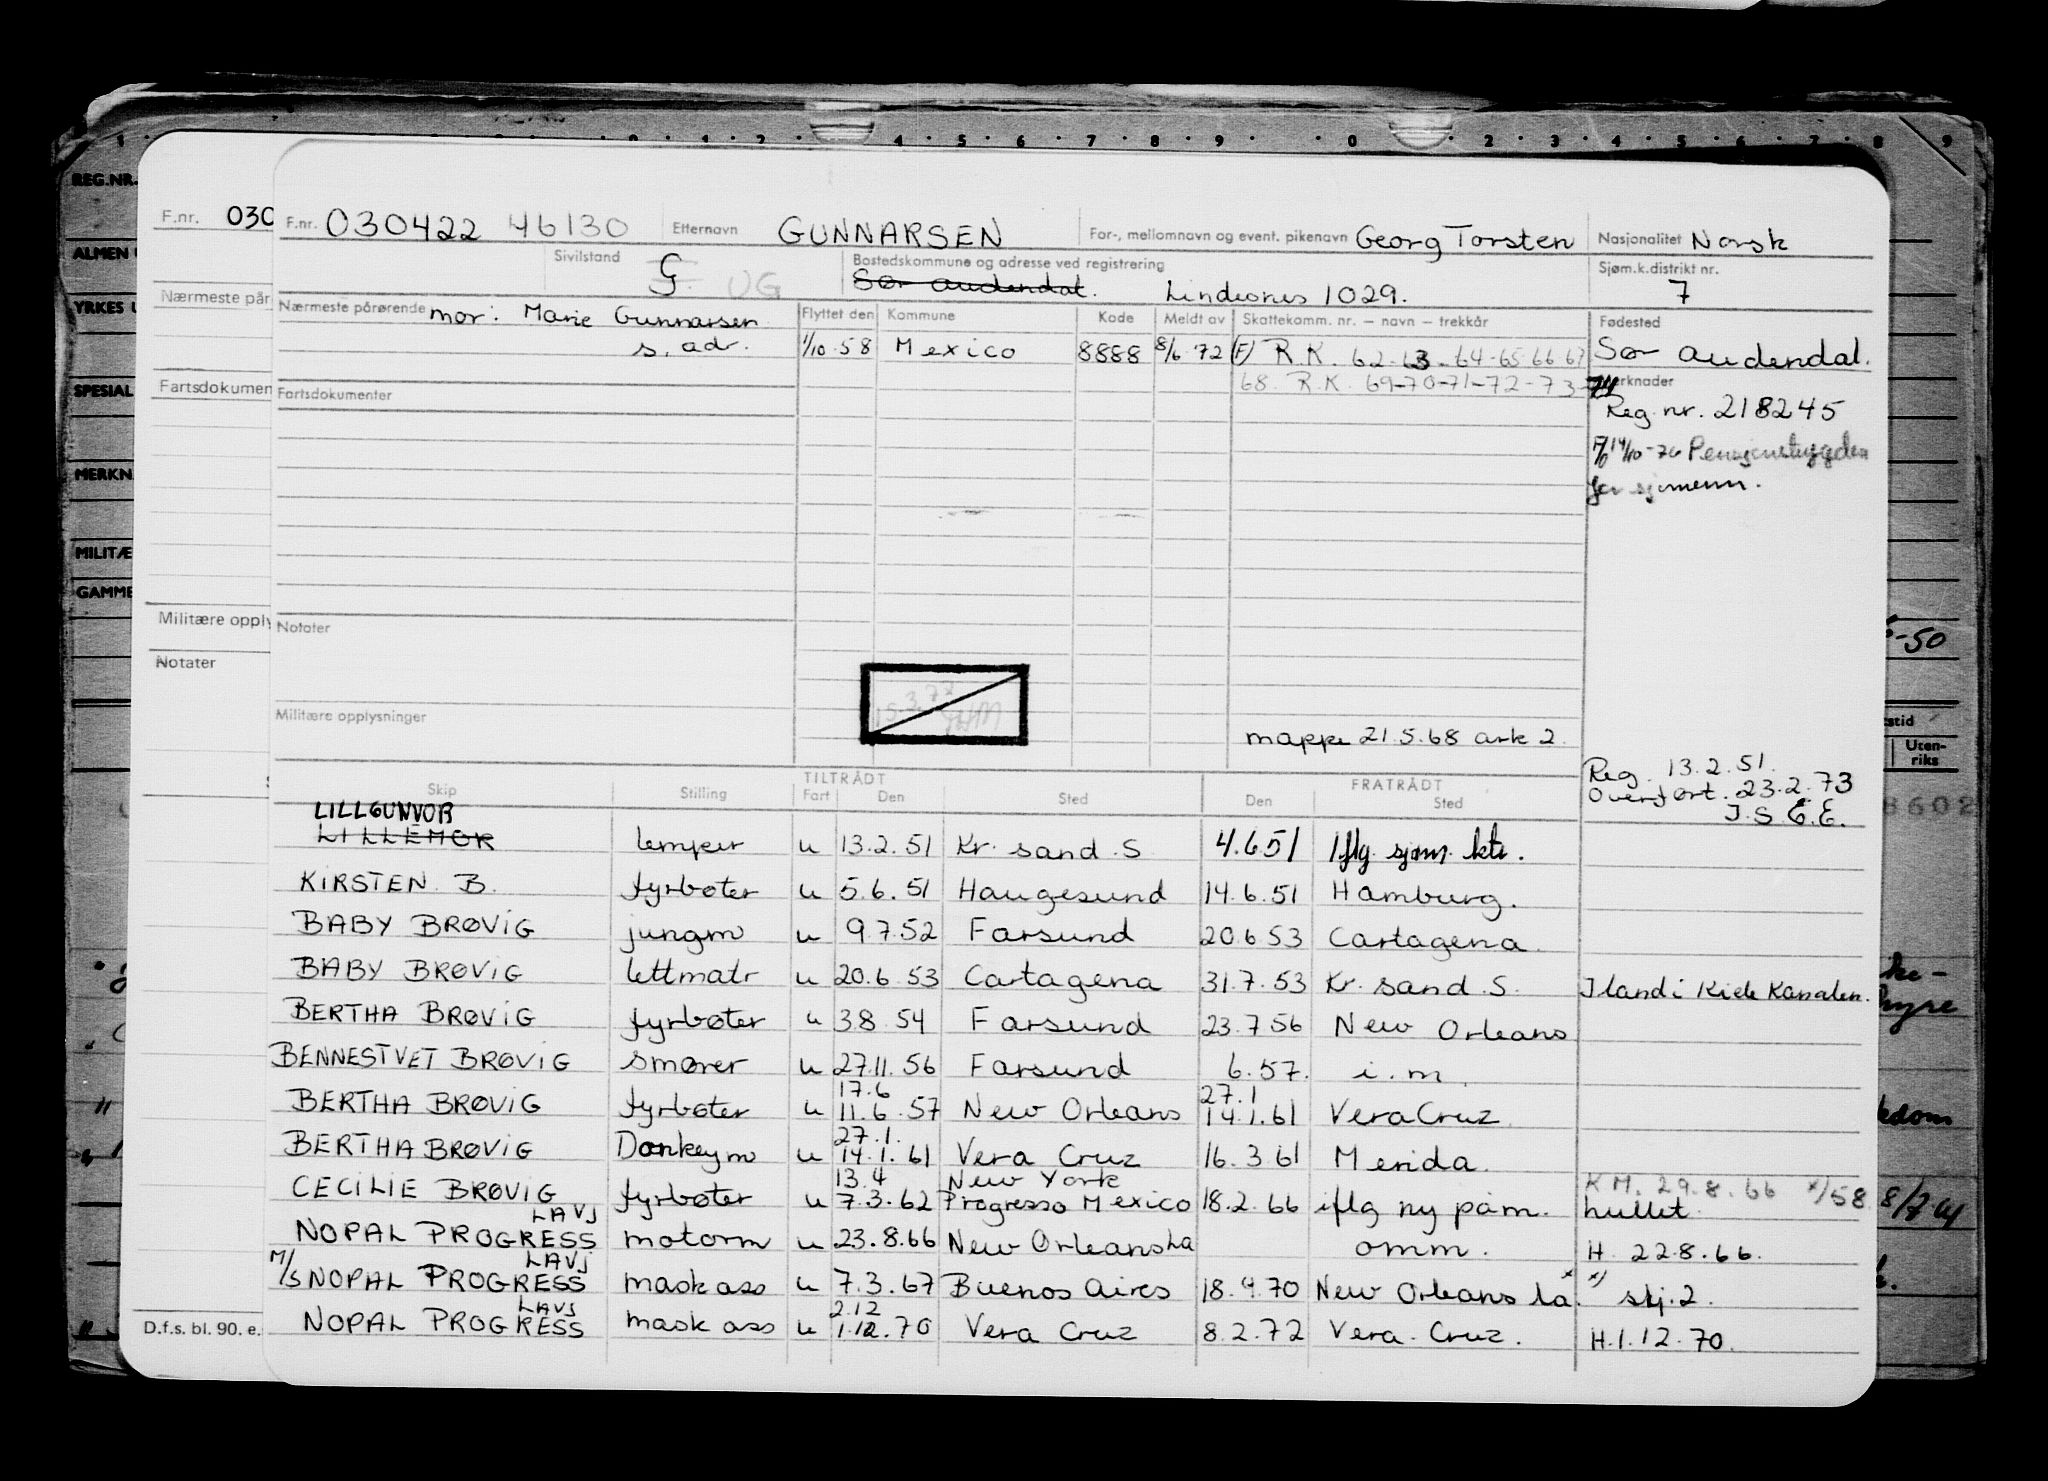 1 · · · 1 · 2 · 4 · 5 · 6 · 7 · 8 · 9 · 0 · 2 · 3 · 4 · 5 · 6 · 7 · 8 · 9
REG.NR.
ALMEN
YRKES
SPESIAL
MERKN
MILITÆ
GAMME
F.nr. 030
Nærmeste pår
Fartsdokumen
Militære opply
Notater
D.f.s. bl. 90. e.
F.nr. 030422 46130 Etternavn GUNNARSEN For-, mellomnavn og event. pikenavn Georg Torsten Nasjonalitet Norsk
Sivilstand G UG Bostedskommune og adresse ved registrering Sør audendal. Lindesnes 1029. Sjøm.k.distrikt nr. 7
Nærmeste pårørende mor: Marie Gunnarsen Flyttet den Kommune Kode Meldt av Skattekomm. nr. – navn – trekkår Fødested
s. adr. 1/10-58 Mexico 8888 8/6-72 (F) R.K. 62-63-64-65-66-67 Sør audendal.
68. R.K. 69-70-71-72-73-74 Merknader
Fartsdokumenter Reg. nr. 218245
14/10-76 Pensjonstrygden
for sjømenn.
Notater
Militære opplysninger
15.3.77
mappe 21.5.68 ark 2.
Reg. 13.2.51.
Overført. 23.2.73
J.S.E.E.
TILTRÅDT FRATRÅDT
Skip Stilling Fart Den Sted Den Sted
LILLGUNVOR
LILLEMOR lemper u 13.2.51 Kr. sand. S 4.6.51 Iflg. sjøm. ktr.
KIRSTEN B. fyrbøter u 5.6.51 Haugesund 14.6.51 Hamburg.
BABY BRØVIG jungm u 9.7.52 Farsund 20.6.53 Cartagena.
BABY BRØVIG lettmatr u 20.6.53 Cartagena 31.7.53 Kr. sand. S. Iland i Kiele Kanalen.
BERTHA BRØVIG fyrbøter u 3.8.54 Farsund 23.7.56 New Orleans
BENNESTVET BRØVIG smører u 27.11.56 Farsund 6.57. i.m.
17.6 27.1
BERTHA BRØVIG fyrbøter u 11.6.57 New Orleans 14.1.61 Vera Cruz
27.1.
BERTHA BRØVIG Donkeym u 14.1.61 Vera Cruz 16.3.61 Merida.
13.4 New York KM. 29.8.66 x/58
CECILIE BRØVIG fyrbøter u 7.3.62 Progresso Mexico 18.2.66 iflg ny påm. hullet.
LAVJ
NOPAL PROGRESS motorm u 23.8.66 New Orleans La omm. H. 22.8.66.
LAVJ
M/S NOPAL PROGRESS mask ass u 7.3.67 Buenos Aires 18.9.70 New Orleans La. x x) skj.2.
LAVJ 2.12
NOPAL PROGRESS mask ass u 1.12.70 Vera Cruz 8.2.72 Vera Cruz. H.1.12.70.
-50
stid
Uten-
riks
8602
ke-
hyre
edom
8/7-61